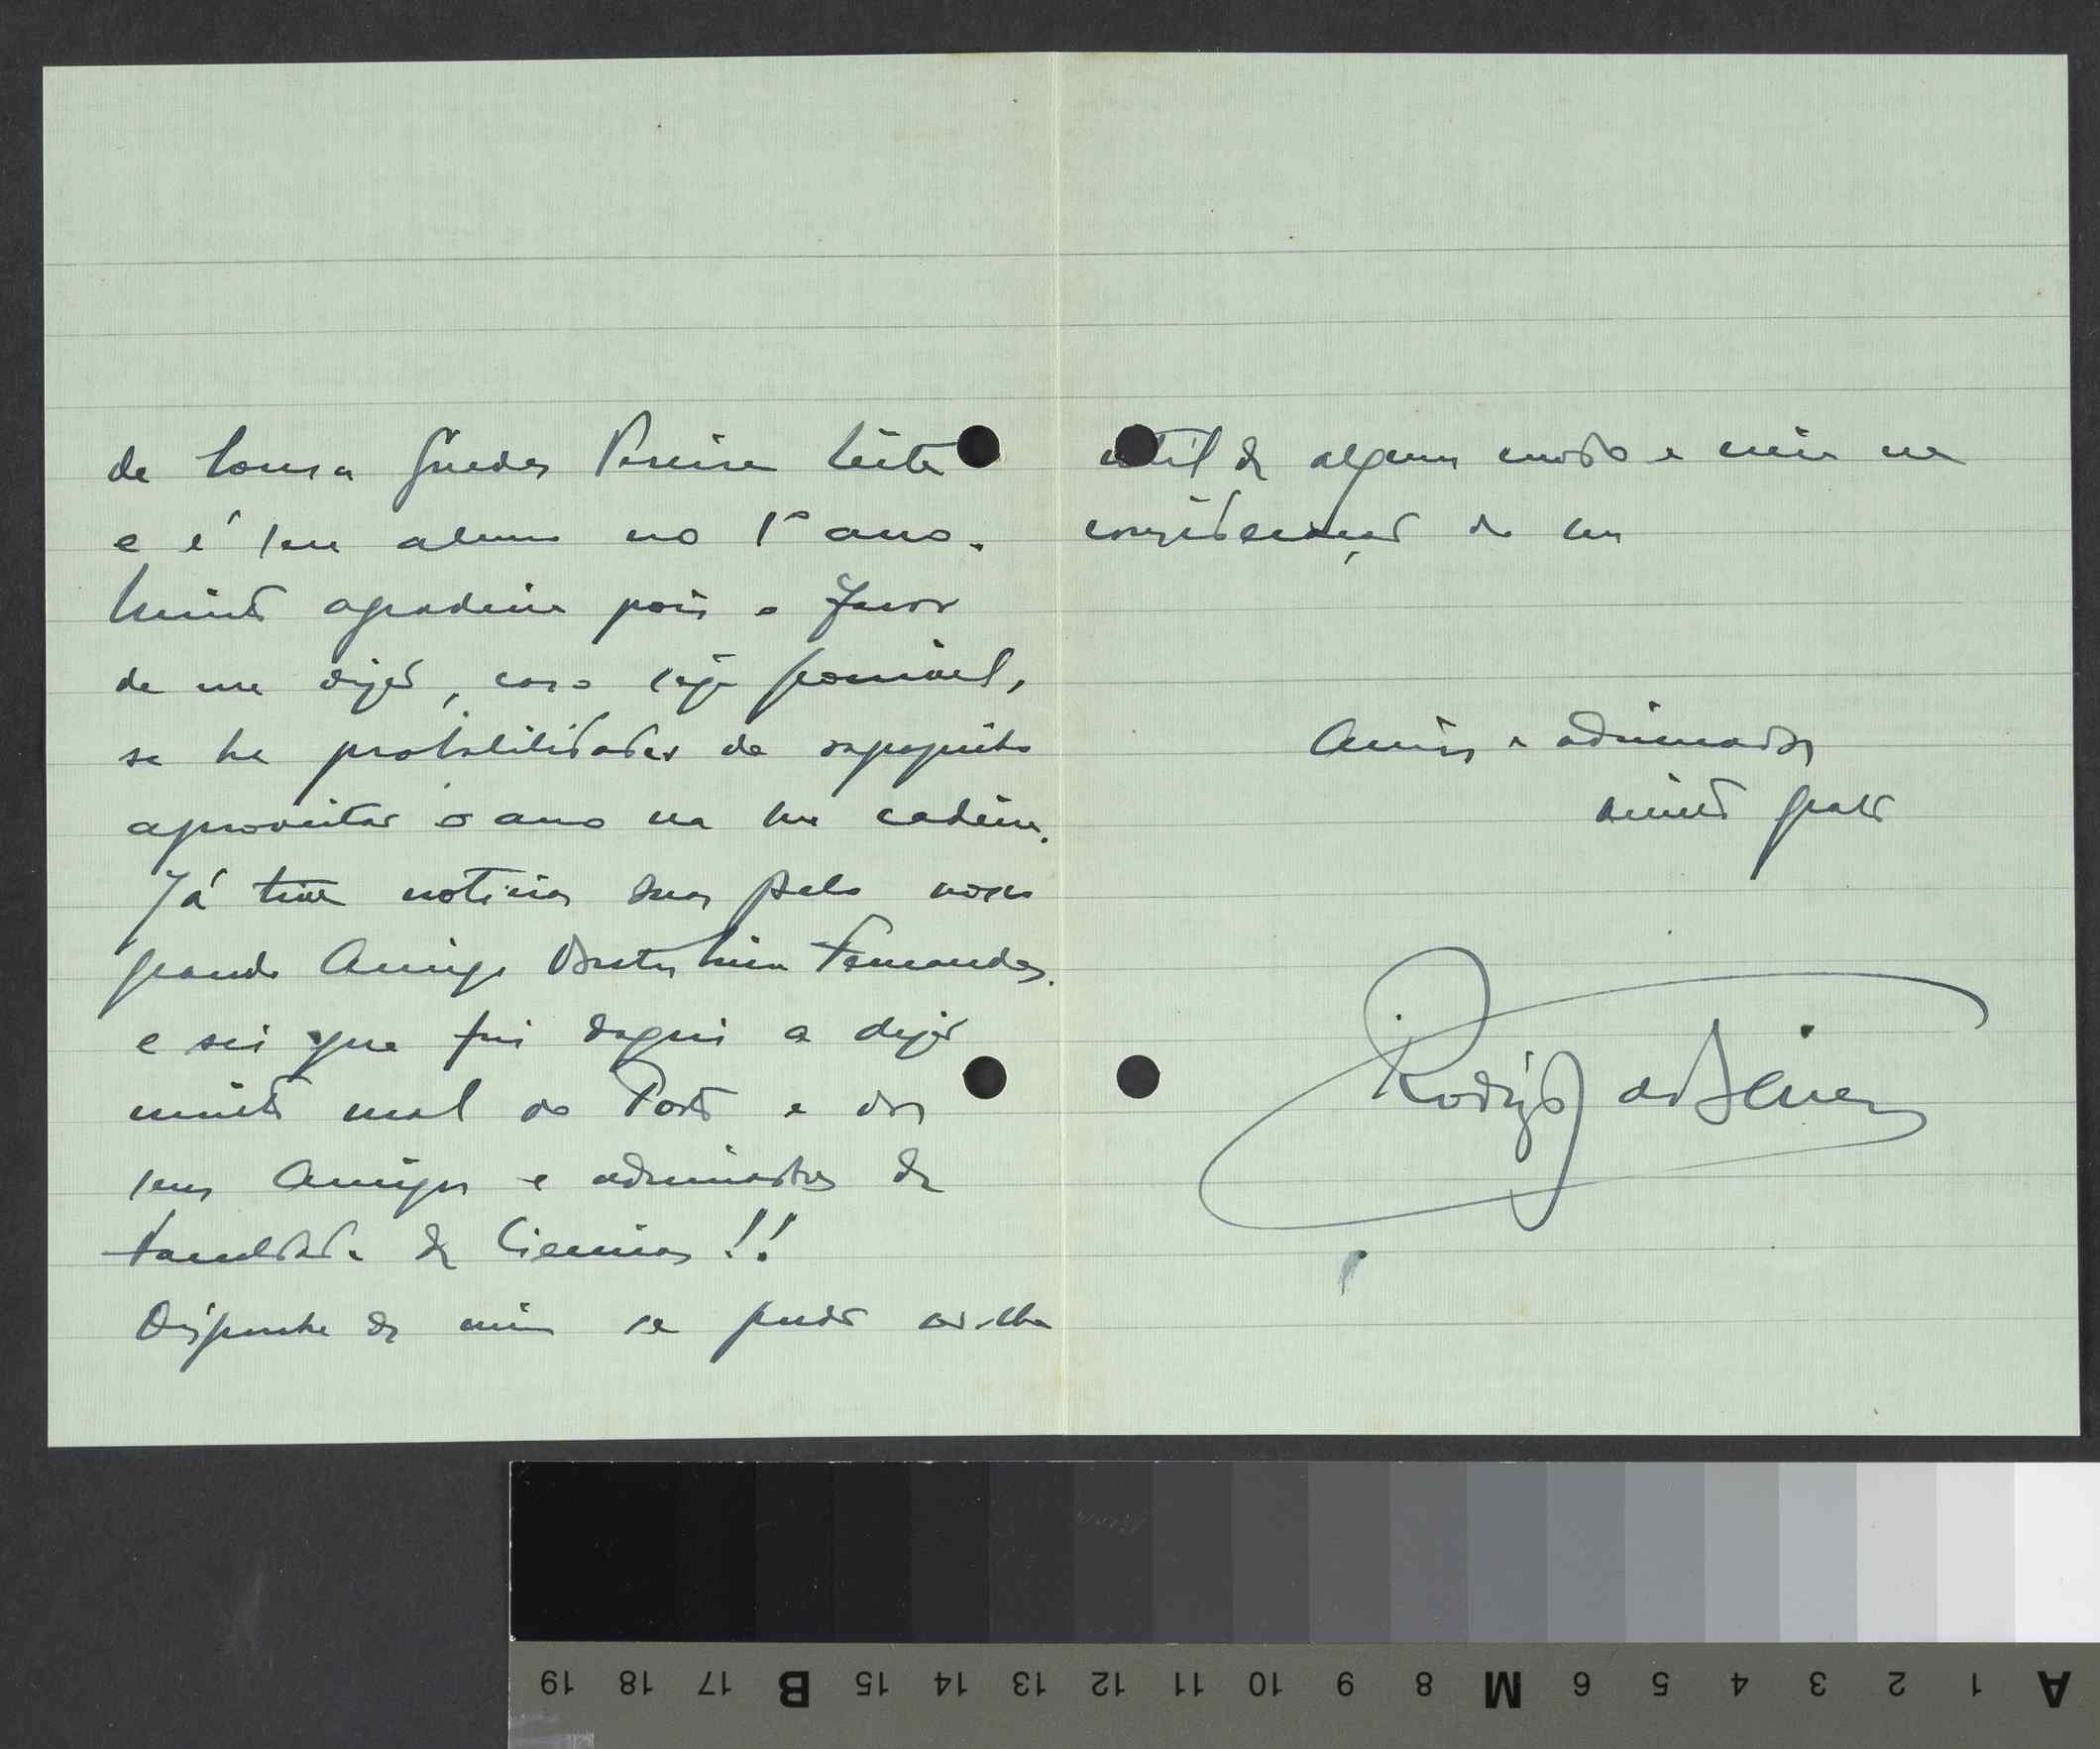 de Sousa Guedes Pereira Leite
e é seu aluno no 1º ano.
Muito agradecia pois o favor
de me dizer, caso seja possivel,
se ha probabilidades do rapazito
aproveitar o ano na sua cadeira.
Já tive noticias suas pelo nosso
grande Amigo Doutor Fernandes.
e sei que foi daqui a dizer
muito mal do Porto e dos
seus Amigos e admiradores da
Faculdade de Ciencias!!
Disponha de mim se puder ser-lhe
util de algum modo e creia na
consideração do seu
Amigo e admirador
muito grato
Rodrigo
19 18 17 B 15 14 13 12 11 10 9 8 M 6 5 4 3 2 1 A